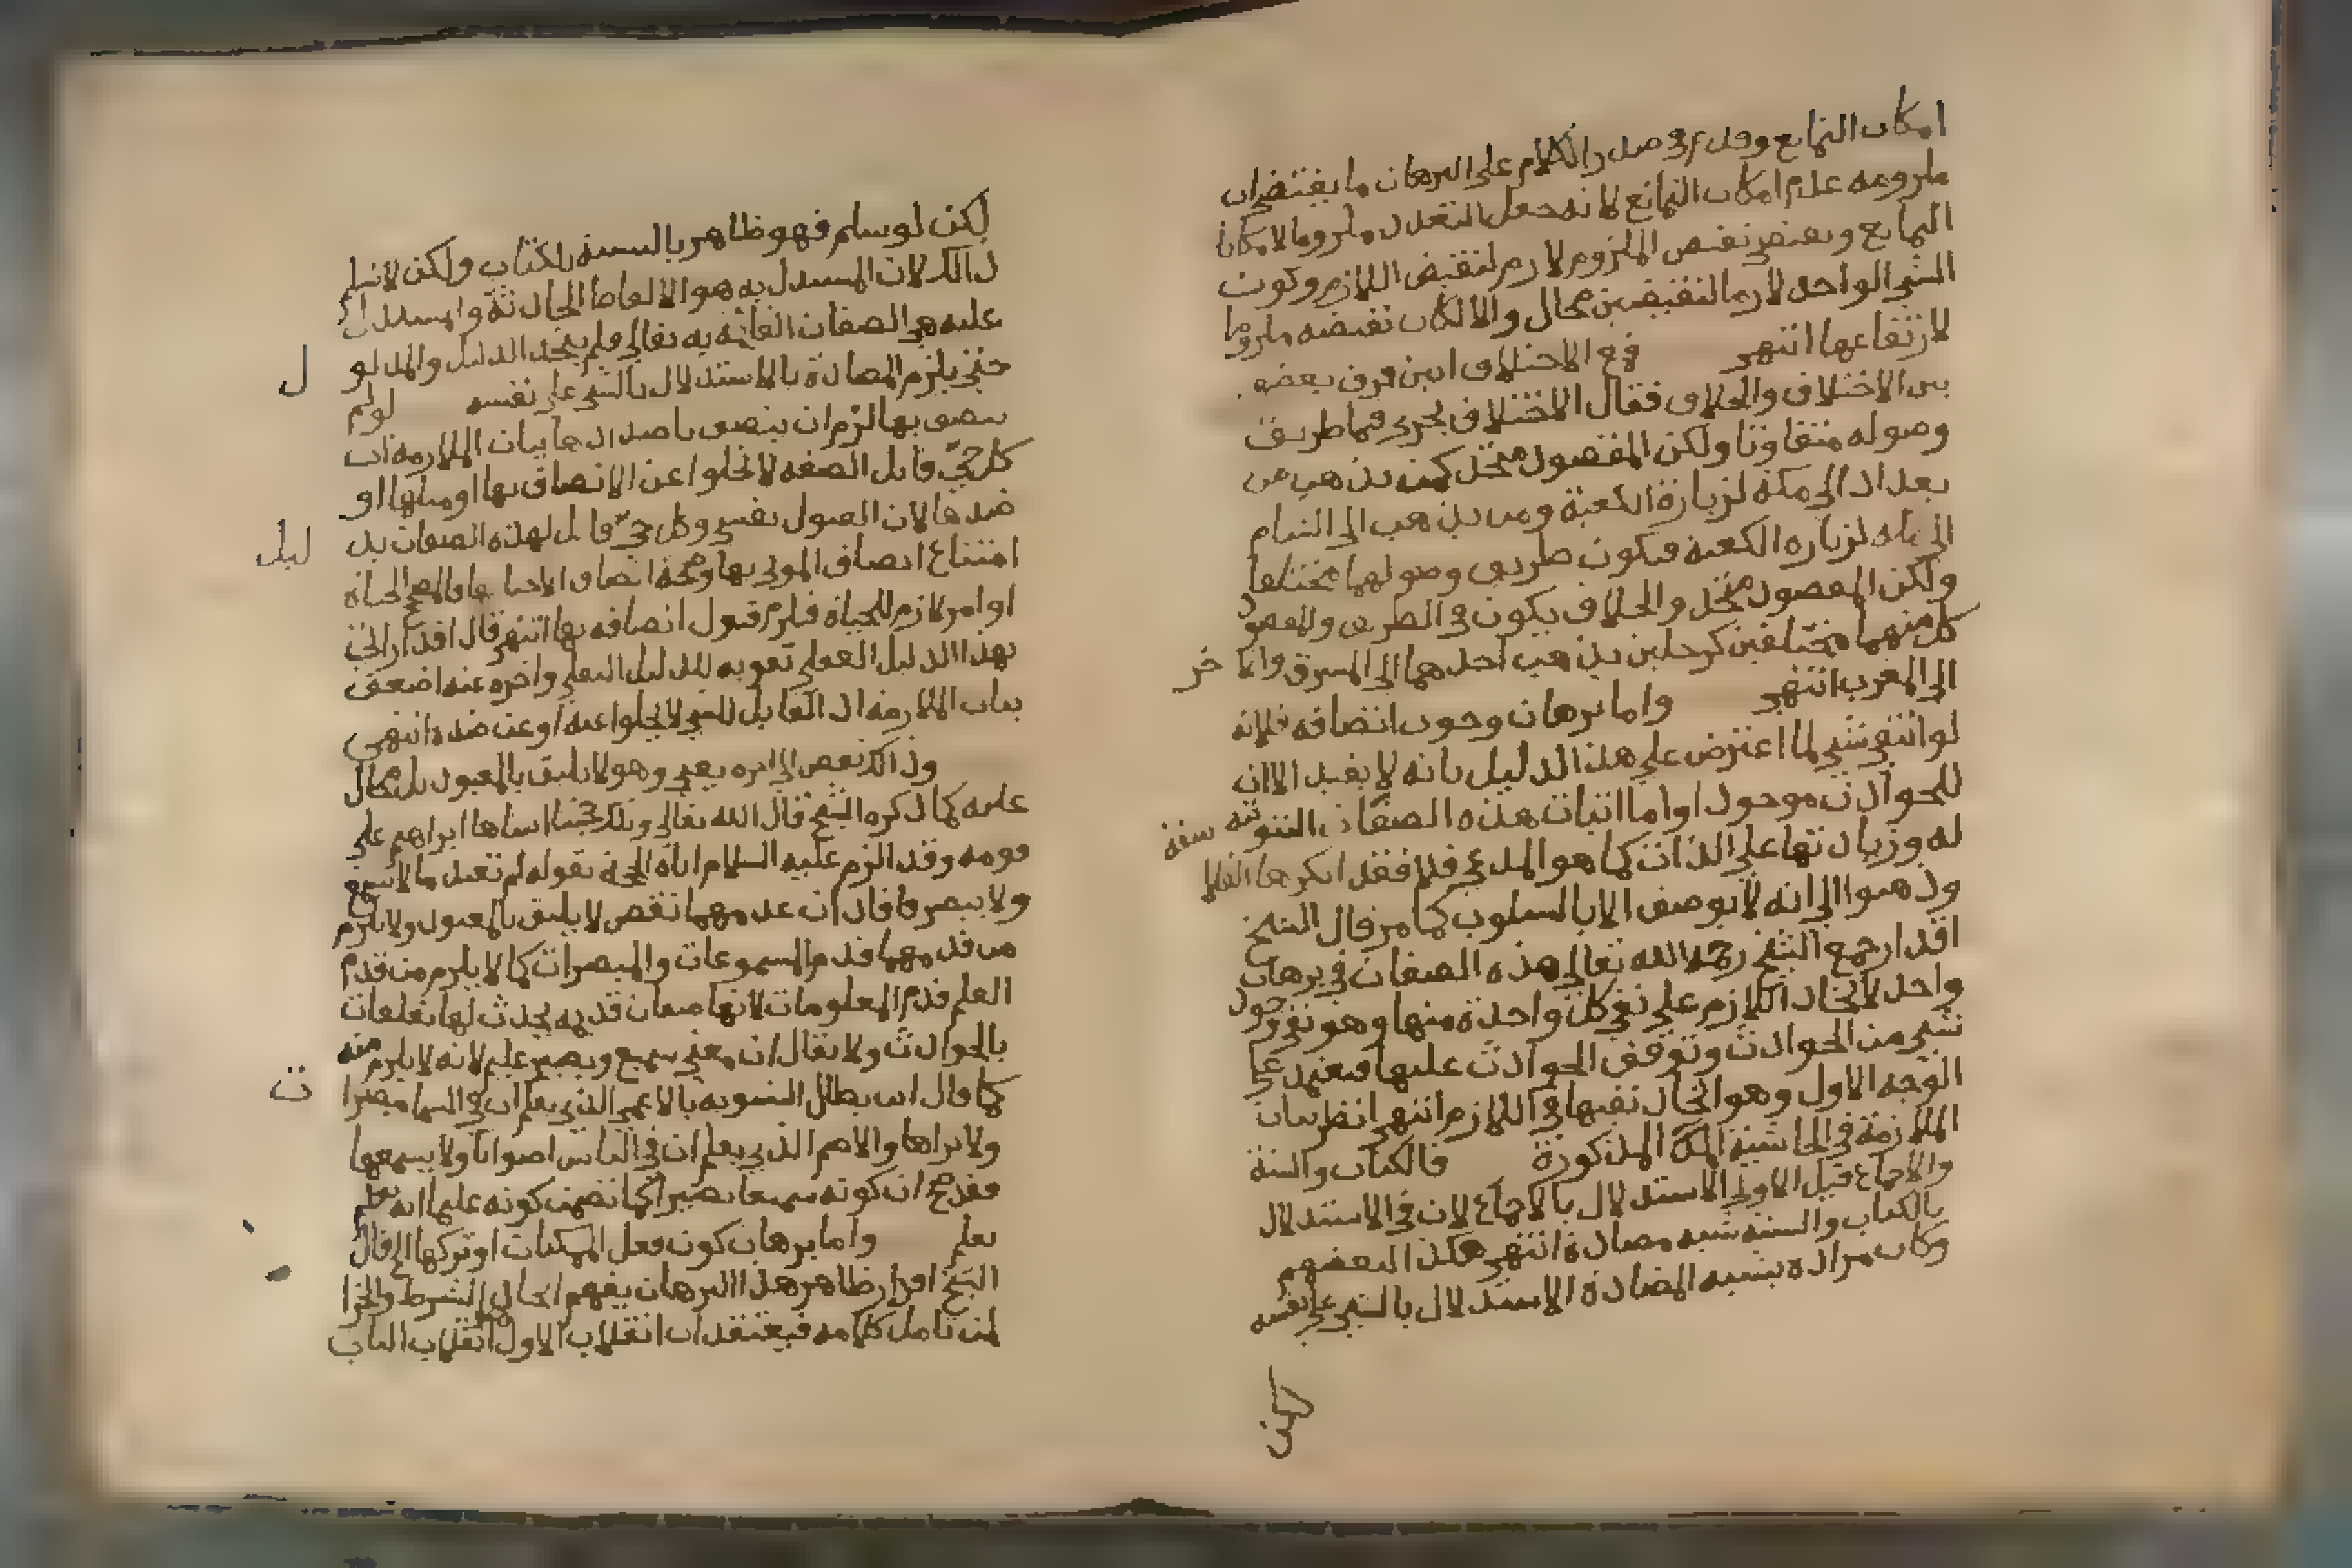 امكان التمانع وقد مر في صدر الكلام على البرهان ما يقتضي ان
ملزومه عدم امكان التمانع لانه جعل التعدد ملزوما لامكان
التمانع ونقيض الملزوم لازم لنقيض اللازم وكون
الشي الواحد لازما لنقيضين محال والا لكان نقيضه ملزوما
لارتفاعها انتهى فع الاختلاف ابين فرق بعضه
بين الاختلاف والخلاف فقال الاختلاف يجري فيما طريق
وصوله متفاوتا ولكن المقصود متحد كمن يذهب من
بغداد الى مكة لزيارة الكعبة ومن يذهب الى الشام
الى لزيارة الكعبة فيكون طريق وصولهما مختلفا
ولكن المقصود متحد والخلاف يكون في الطريق والمقصود
كل منهما مختلفين كرجلين يذهب احدهما الى المشرق والاخر
الى المغرب انتهى واما برهان وجوب اتصافه فلانه
لو انتفى شي لما اعترض على هذا الدليل بانه لا يفيد الا ان
للحوادث موجودا واما اثبات هذه الصفات الثبوتية صفة
له وزيادتها على الذات كما هو المدعى فلا فقد انكرها الفلا
وذهبوا الى انه لا يوصف الا بالسلوب كما مر قال الشيخ
اقدار جمع الشيخ رحمه الله تعالى هذه الصفات في برهان
واحد لاتحاد اللازم على نفي كل واحدة منها وهو نفي وجود
شي من الحوادث وتوقف الحوادث عليها فيعتمد على
الوجه الاول وهو اتحاد نفيها في اللازم انتهى انظر بيان
الملازمة في الحاشية المذكورة فالكتاب والسنة
والاجماع قيل الاولى الاستدلال بالاجماع لان في الاستدلال
بالكتاب والسنة شبه مصادة انتهى هكذا لبعضهم
وكان مراده بشبه المصادة الاستدلال بالشي على نفسه
لكن
لكن لو سلم فهو ظاهر بالنسبة للكتاب ولكن لا نسلم
ذالك لان المستدل به هو الالفاظ الحادثة والمستدل
عليه هي الصفات القائمة به تعالى فلم يتحد الدليل والمدلول
حتى يلزم المصادة بالاستدلال بالشي على نفسه لو لم
يتصف بها لزم ان يتصف باضدادها بيان الملازمة ان
كل حي قابل الصفه لا يخلوا عن الاتصاف بها او مثلها او
ضدها لان القبول نفسي وكل حي قابل لهذه الصفات بدليل
امتناع اتصاف الموتى بها وصحة اتصاف الاحيا بها فالمصحح الحياة
او امر لازم للحياة فلزم قبول اتصافه بها انتهى قال اقدار اتى
بهذا الدليل العقلي تقوية للدليل النقلي واخره عنه لضعف
بيان الملازمة اذ القابل للشي لا يخلوا عنه او عن ضده انتهى
وذالك نقص الى اخره يعني وهو لا يليق بالمعبود بل محال
عليه كما ذكره الشيخ قال الله تعالى وتلك حجتنا اتيناها ابراهيم على
قومه وقد الزم عليه السلام اباه الحجة بقوله لم تعبد ما لا يسمع
ولا يبصر فافاد ان عدمهما نقص لا يليق بالمعبود ولا يلزم
من قدمهما قدم المسموعات والمبصرات كما لا يلزم من قدم
العلم قدم المعلومات لانها صفات قديمه يحدث لها تعلقات
بالحوادث ولا يقال ان معنى سميع وبصير عليم لانه لا يلزم منه
كما قال ابن بطال التسوية بالاعمى الذي يعلم ان في السما خضرا
ولا يراها والاصم الذي يعلم ان في الناس اصواتا ولا يسمعها
فقد صح ان كونه سميعا بصيرا كما تضمن كونه عليما انه يعلم
بعلم واما برهان كون فعل الممكنات او تركها الخ قال
الشيخ اقدار ظاهر هذا البرهان يفهم اتحاد الشرط والجزا
لمن تامل كلامه فيعتقد ان انقلاب الاول انقلاب الباب